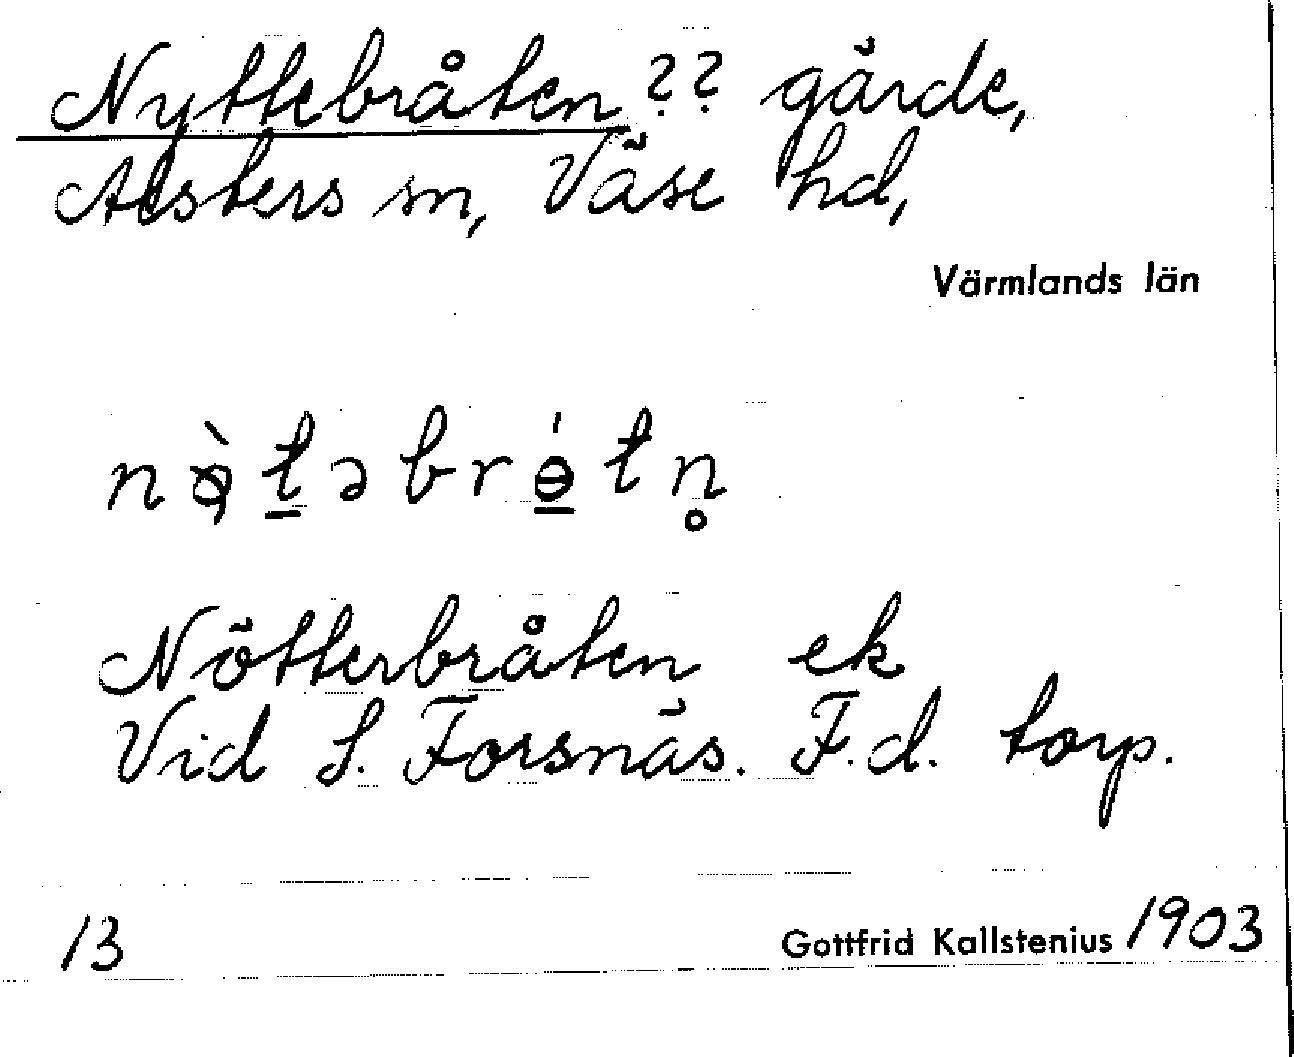 Nyttebråten ?? gärde,
Alsters sn, Väse hd,
Värmlands län
n ø̀ t̲ ə b r ɵ̲́ t n̥
Nötterbråten ek
Vid S. Forsnäs. F.d. torp.
13
Gottfrid Kallstenius 1903